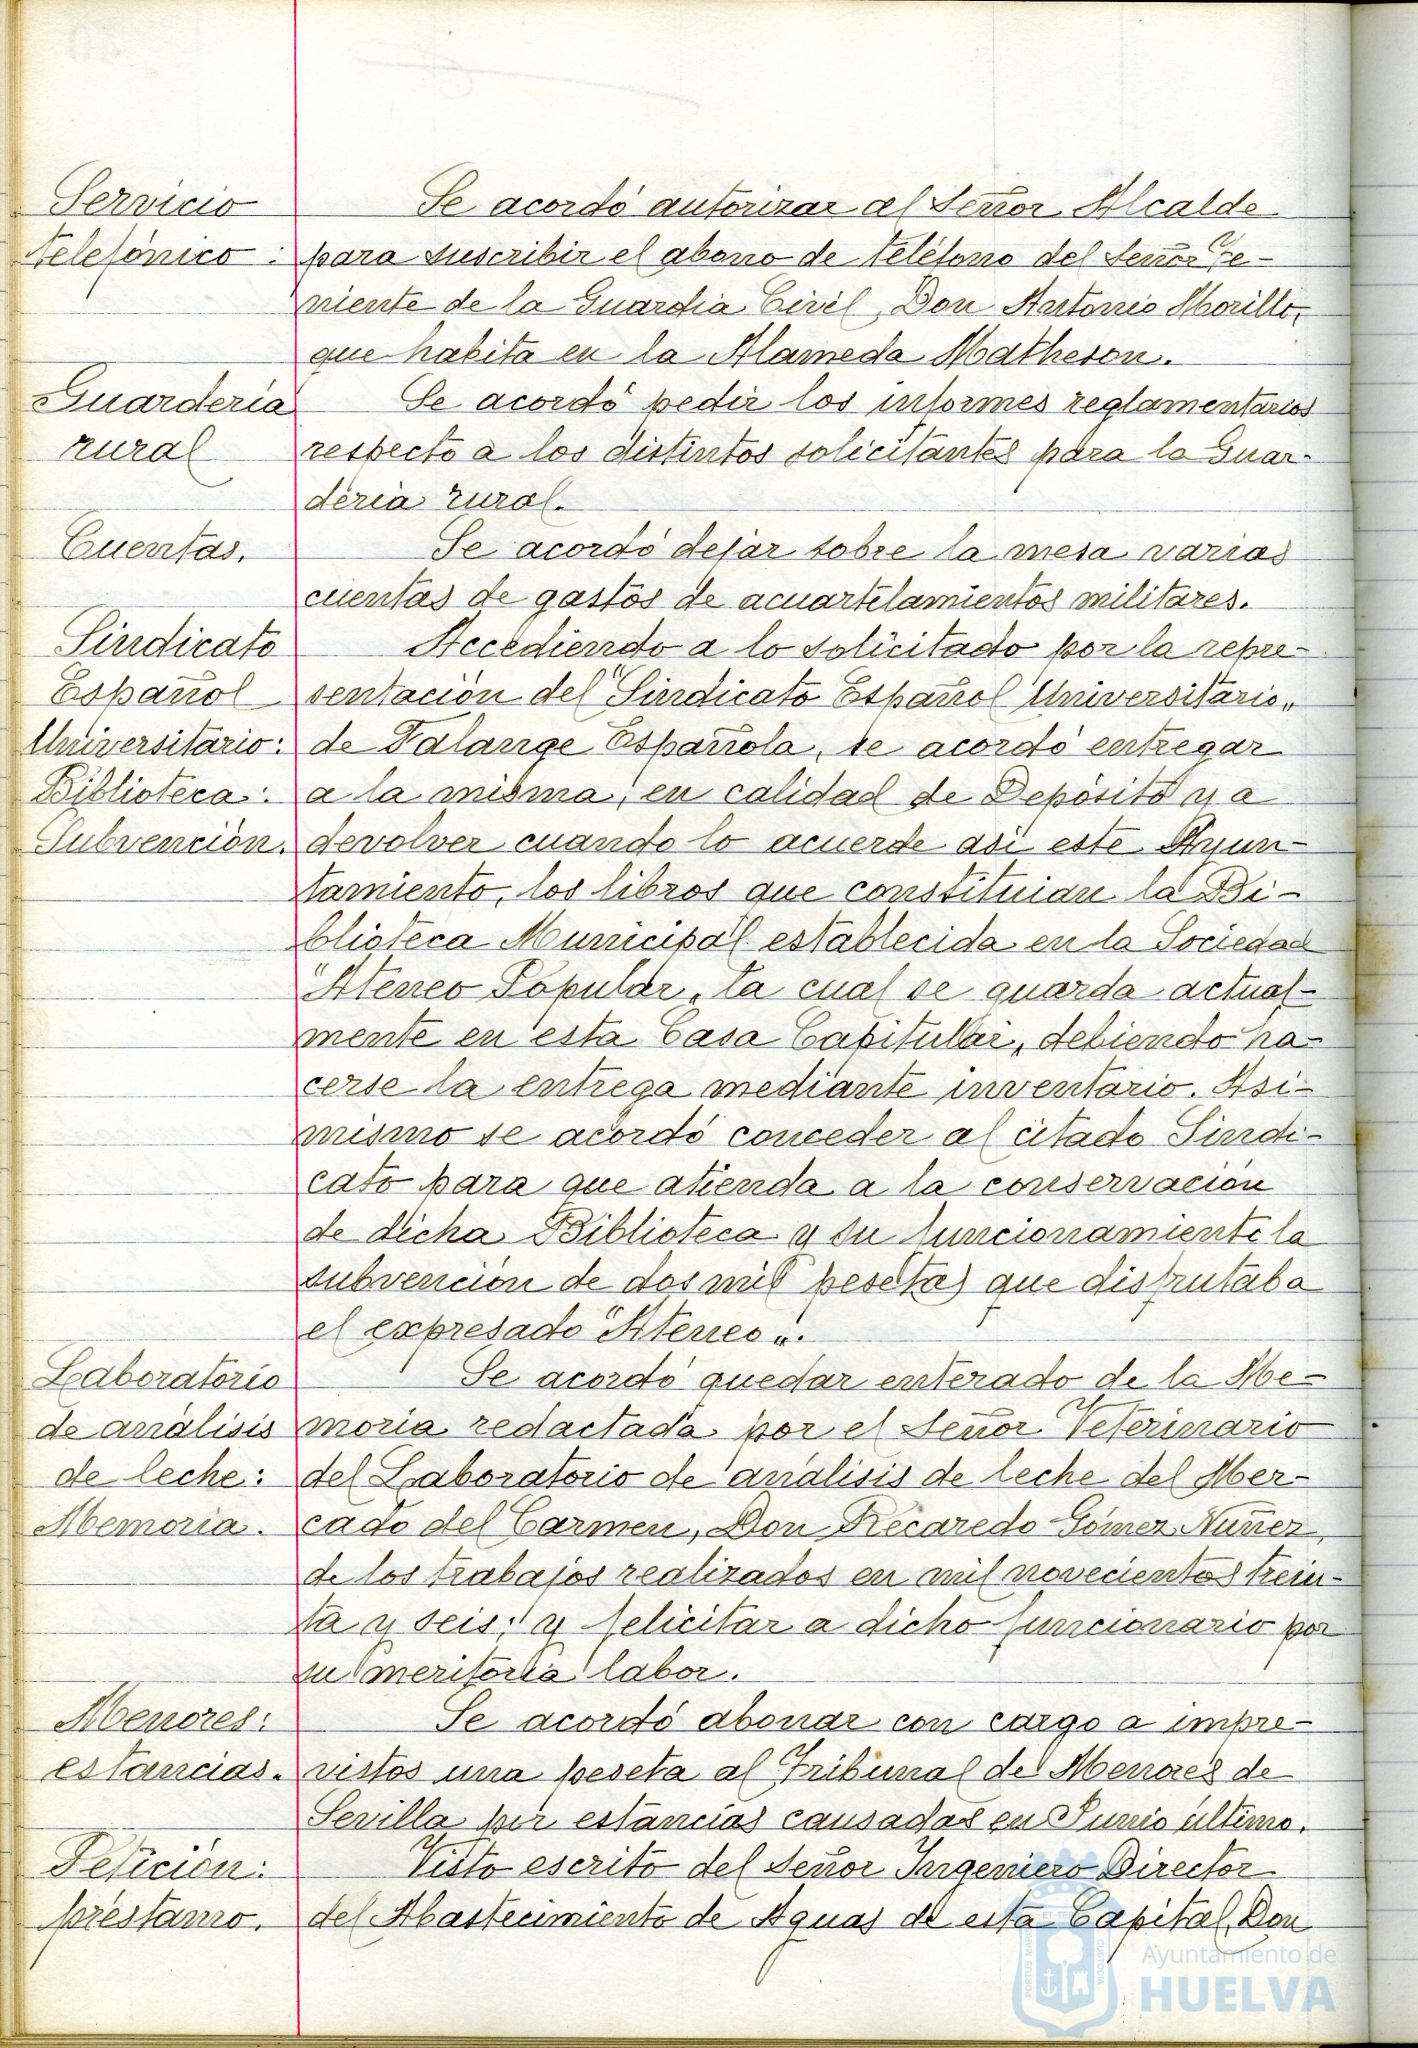 Servicio
telefónico:
Se acordó autorizar al Señor Alcalde
para suscribir el abono de teléfono del Señor Te-
niente de la Guardia Civil, Don Antonio Morillo,
que habita en la Alameda Matheson.
Guardería
rural
Se acordó pedir los informes reglamentarios
respecto a los distintos solicitantes para la Guar-
dería rural.
Cuentas.
Se acordó dejar sobre la mesa varias
cuentas de gastos de acuartelamientos militares.
Sindicato
Español
Universitario:
Biblioteca:
Subvención.
Accediendo a lo solicitado por la repre-
sentación del "Sindicato Español Universitario"
de Falange Española, se acordó entregar
a la misma, en calidad de Depósito y a
devolver cuando lo acuerde así este Ayun-
tamiento, los libros que constituian la Bi-
blioteca Municipal establecida en la Sociedad
"Ateneo Popular", la cual se guarda actual-
mente en esta Casa Capitular, debiendo ha-
cerse la entrega mediante inventario. Asi-
mismo se acordó conceder al citado Sindi-
cato para que atienda a la conservación
de dicha Biblioteca y su funcionamiento la
subvención de dos mil pesetas que disfrutaba
el expresado "Ateneo".
Laboratorio
de análisis
de leche:
Memoria.
Se acordó quedar enterado de la Me-
moria redactada por el Señor Veterinario
del Laboratorio de análisis de leche del Mer-
cado del Carmen, Don Recaredo Gómez Nuñez,
de los trabajos realizados en mil novecientos trein-
ta y seis; y felicitar a dicho funcionario por
su meritoria labor.
Menores:
estancias.
Se acordó abonar con cargo a impre-
vistos una peseta al Tribunal de Menores de
Sevilla por estancias causadas en Junio último.
Petición:
préstamo.
Visto escrito del Señor Ingeniero Director
del Abastecimiento de Aguas de esta Capital, Don
Ayuntamiento de
HUELVA